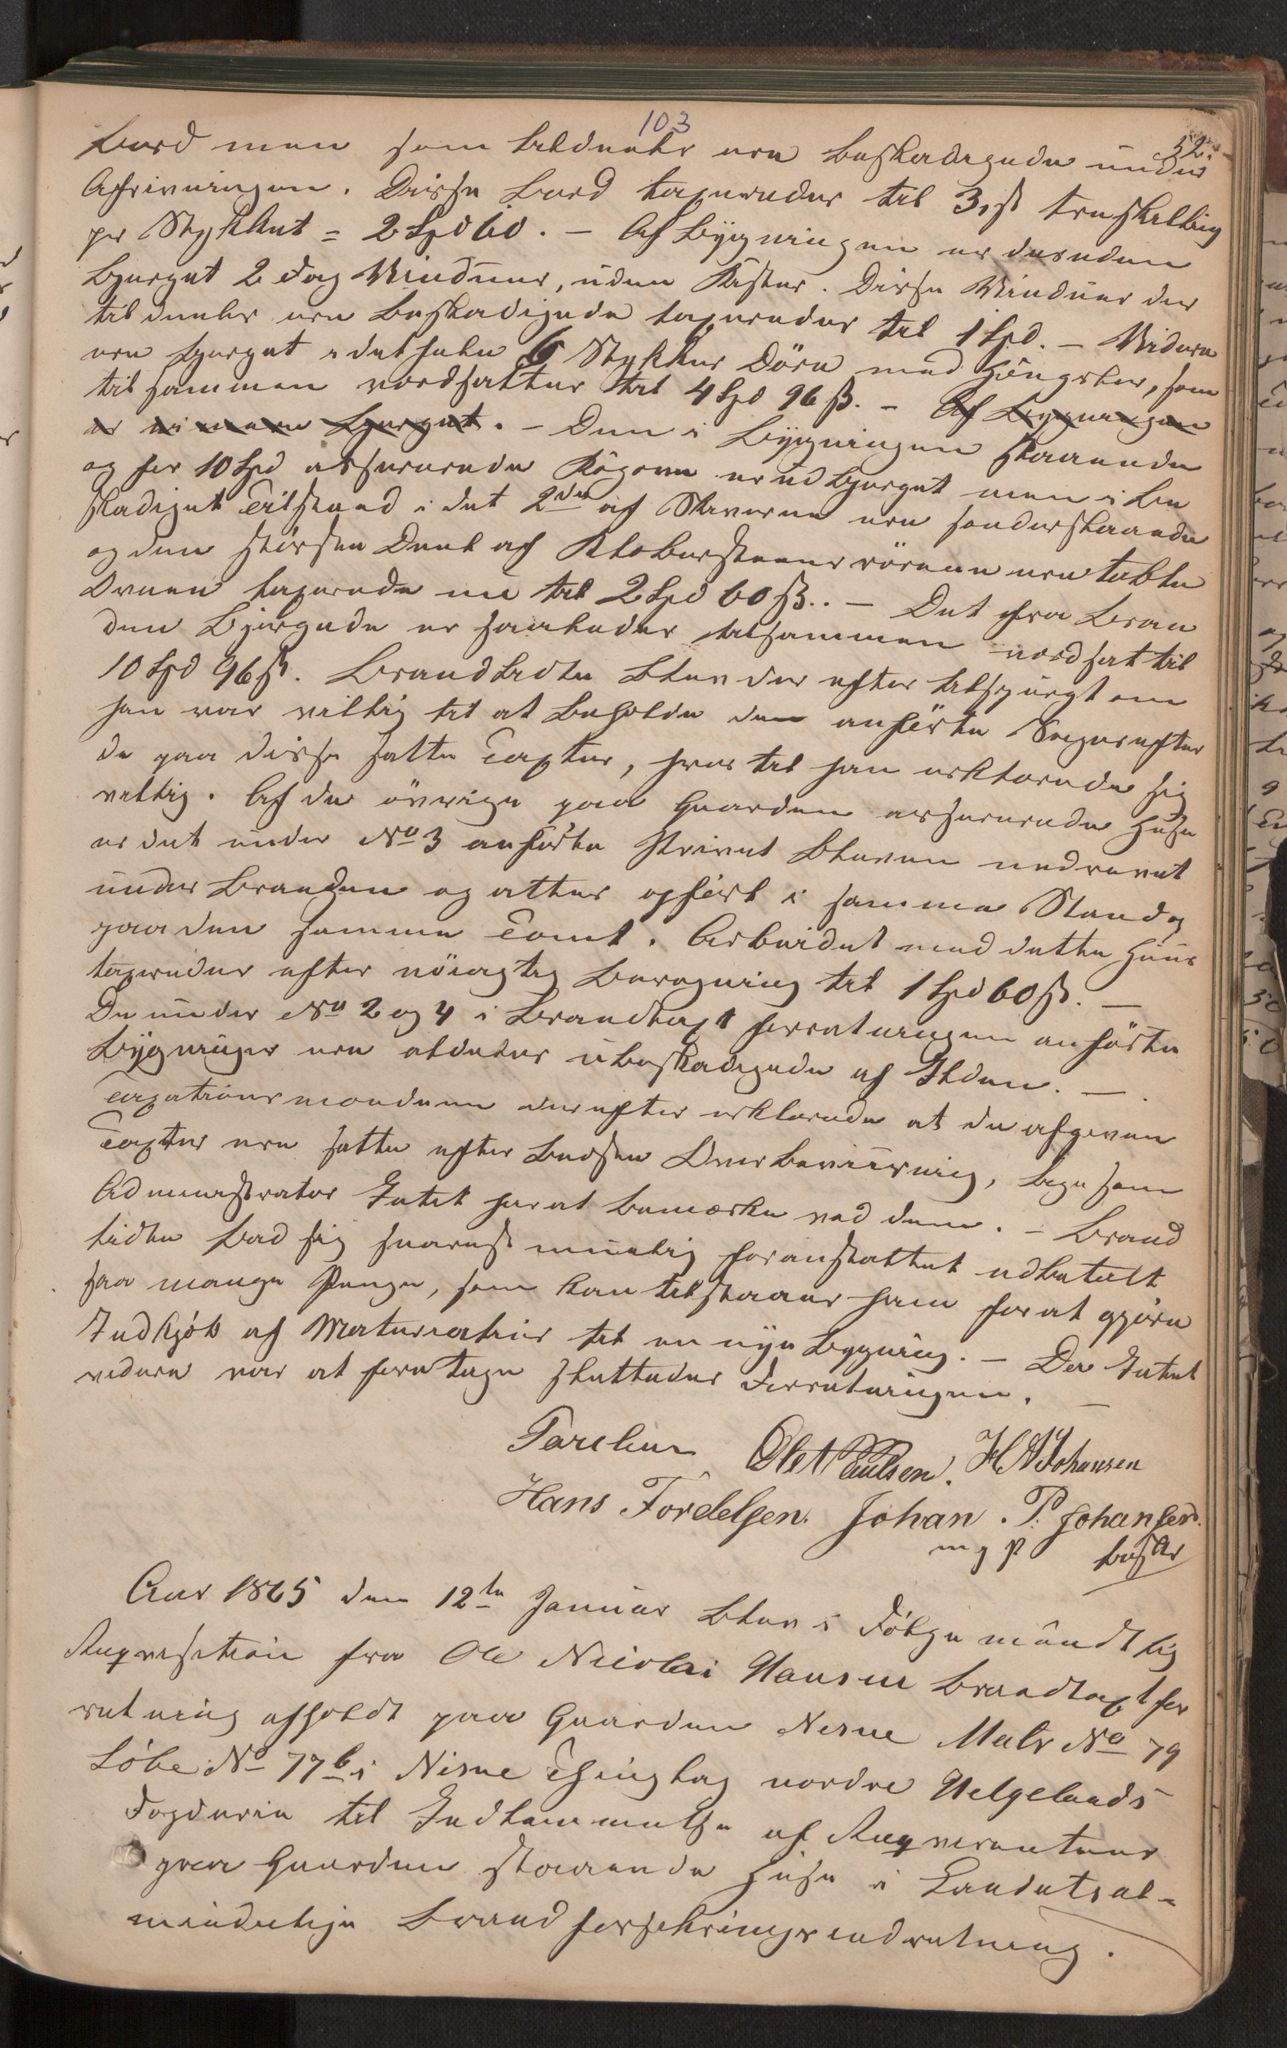 103
52.
Bord men som tildeels ere beskadigede under
Afrivningen. Disse Bord taxeredes til 3 ß tre skilling
pr Stykket = 2 Spd 60. – Af Bygningen er desuden
bjerget 2 Fag Vinduer, uden Kister. Disse Vinduer der
tildeels ere beskadigede taxeredes til 1 Spd. – Videre
ere bjerget idethele 6 Stykker Döre med Hengsler, som
tilsammen værdsattes til 4 Spd 96 ß. – Af Bygningen
er bjerget. – Den i Bygningen staaende
og for 10 Spd assurerede Kogovn er udbjerget men i be
skadiget Tilstand i det 2de af Skiverne ere sonderslaaede
og den störste Deel af Klebersteensrörene ere tabte
Ovnen taxerede nu til 2 Spd 60 ß. – Det fra Bran
den Bjergede er saaledes tilsammen værdsat til
10 Spd 96 ß. Brandlidte blev derefter tilspurgt om
han var villig til at beholde den anförte Sager efter
de paa disse satte Taxter, hvortil han erklærede sig
villig. Af de övrige paa Gaarden assurerede Huse
er det under No 3 anförte Skrivet bleven nedrevet
under Branden og atter opfört i samme Stand og
paa den samme Tomt. Arbeidet med dette Huus
taxeredes efter nöiagtig Beregning til 1 Spd 60 ß. –
De under No 2 og 4 i Brandtaxtforretningen anförte
Bygninger ere aldeles ubeskadigede af Ilden. –
Taxationsmændene derefter erklærede at de afgivne
Taxter ere satte efter bedste Overbeviisning, ligesom
Administrator Intet har at bemærke ved dem. – Brand
lidte bad sig snarest muelig foranstaltet udbetalt
saa mange Penge, som kan tilstaaes ham for at gjöre
Indkjöb af Materialier til en nye Bygning. – Da Intet
videre var at foretage sluttedes Forretningen. –
Olet Paulsen. H A Johansen
Hans Fordelsen. Johan. P. Johansen.
m g P
Aar 1865 den 12te Januar blev i Fölge mundtlig
Reqvisition fra Ole Nicolai Hansen Brandtaxtfor
retning afholdt paa Gaarden Nesne Matr No 79
Löbe No 77 b i Nesne Thinglag nordre Helgelands
Fogderie til Indlemmelse af Reqvirentens
paa Gaarden staaende Huse i Landets al-
mindelige Brandforsikringsindretning.